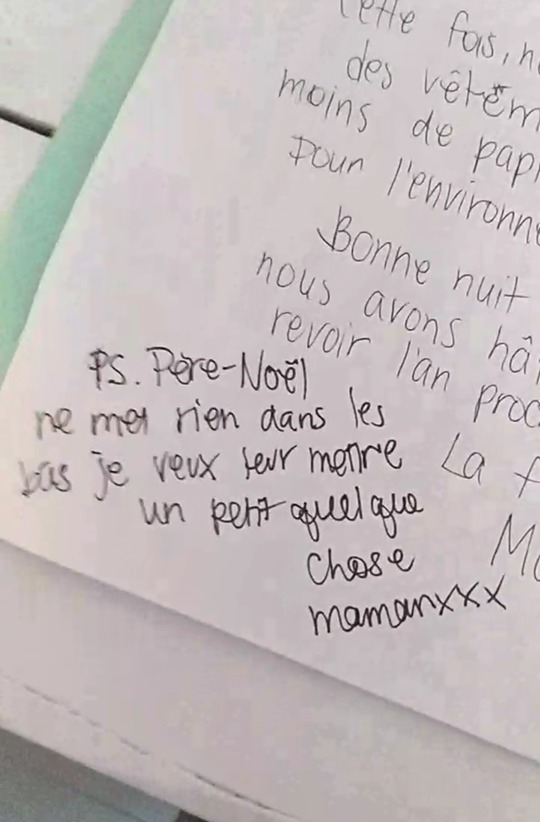 Cette fois,
des
moins de
pour
Bonne nuit
nous avons
revoir l'an
La
PS. Père-Noël
ne met rien dans les
bas je veux leur mettre
un petit quelque
chose
mamanxxx